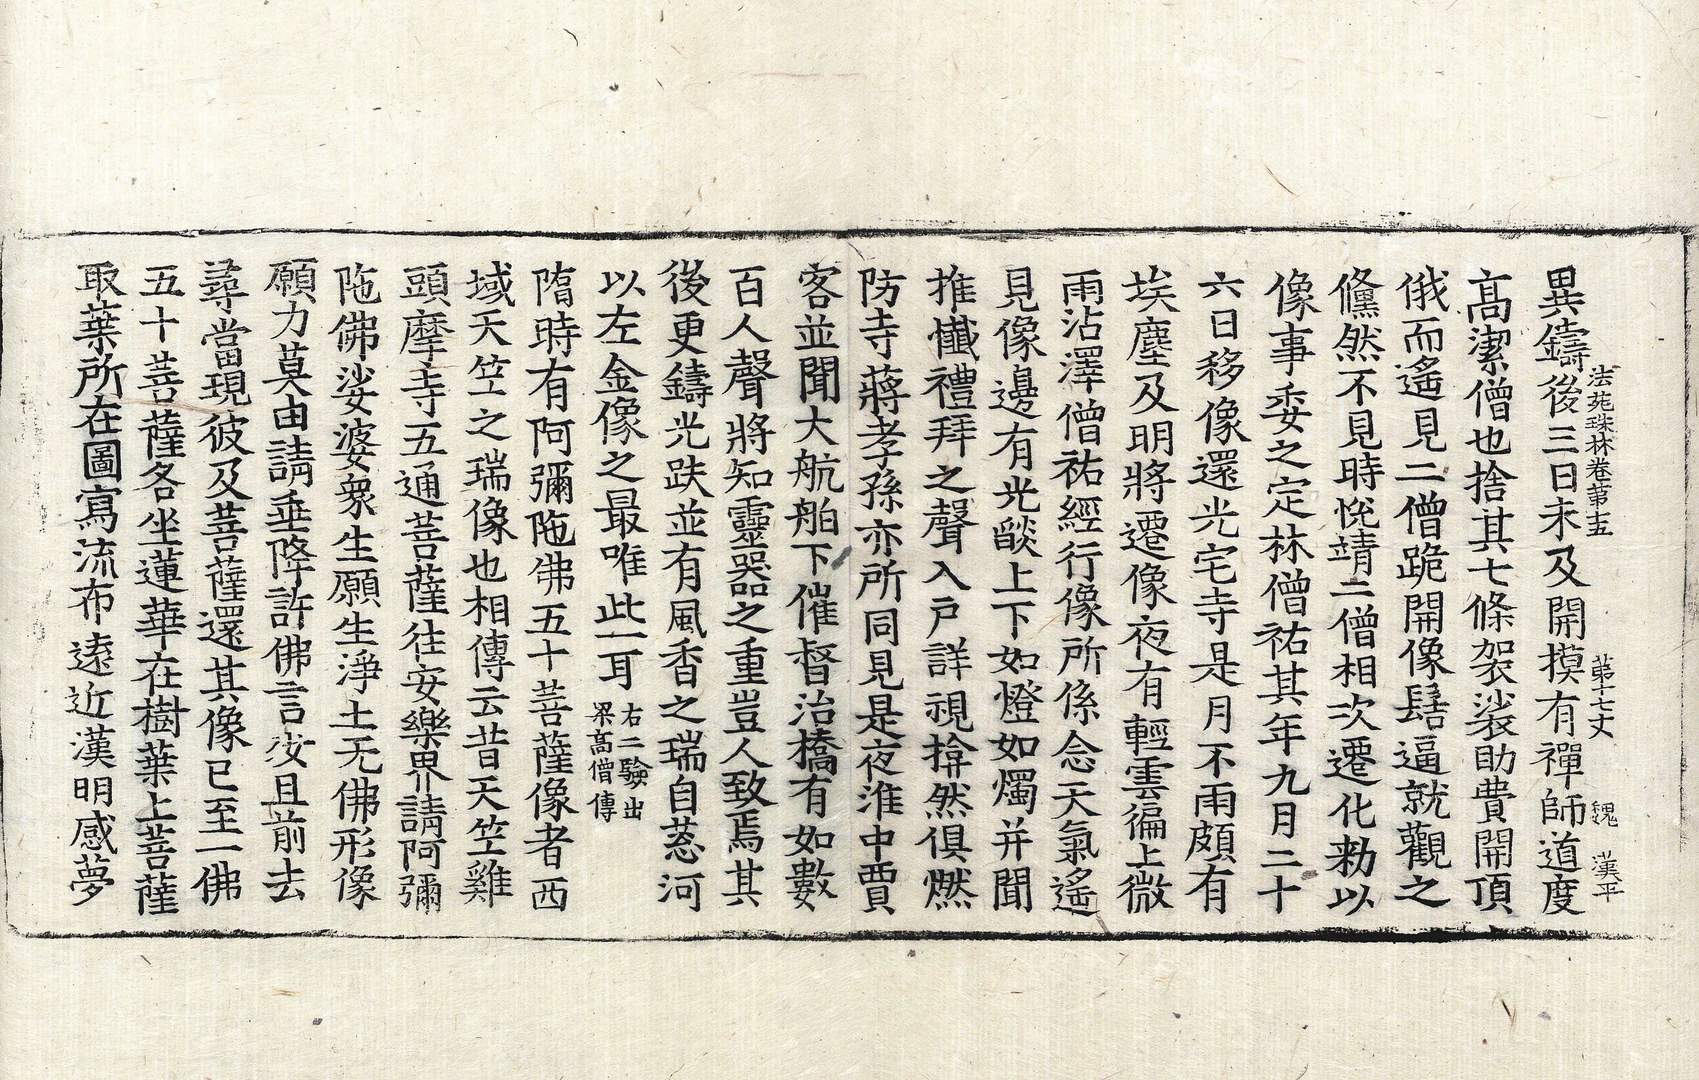 法苑珠林卷第十五　第十七丈　魏　漢平
異鑄後三日未及開摸有禪師道度
髙潔僧也捨其七條袈裟助費開頂
俄而遙見二僧跪開像髻逼就觀之
儵然不見時悅靖二僧相次遷化勑以
像事委之定林僧祐其年九月二十
六日移像還光宅寺是月不雨頗有
埃塵及明將遷像夜有輕雲徧上微
雨沾澤僧祐經行像所係念天氣遙
見像邊有光燄上下如燈如燭并聞
推懺禮拜之聲入戸詳視揜然俱燃
防寺蔣孝孫亦所同見是夜淮中賈
客並聞大航舶下催督治橋有如數
百人聲將知靈器之重豈人致焉其
後更鑄光趺並有風香之瑞自葱河
以左金像之最唯此一耳右二驗出梁高僧傳
隋時有阿彌陁佛五十菩薩像者西
域天竺之瑞像也相傳云昔天竺雞
頭摩寺五通菩薩往安樂界請阿彌
陁佛娑婆衆生願生淨土无佛形像
願力莫由請垂降許佛言汝且前去
尋當現彼及菩薩還其像已至一佛
五十菩薩各坐蓮華在樹葉上菩薩
取葉所在圖寫流布遠近漢明感夢